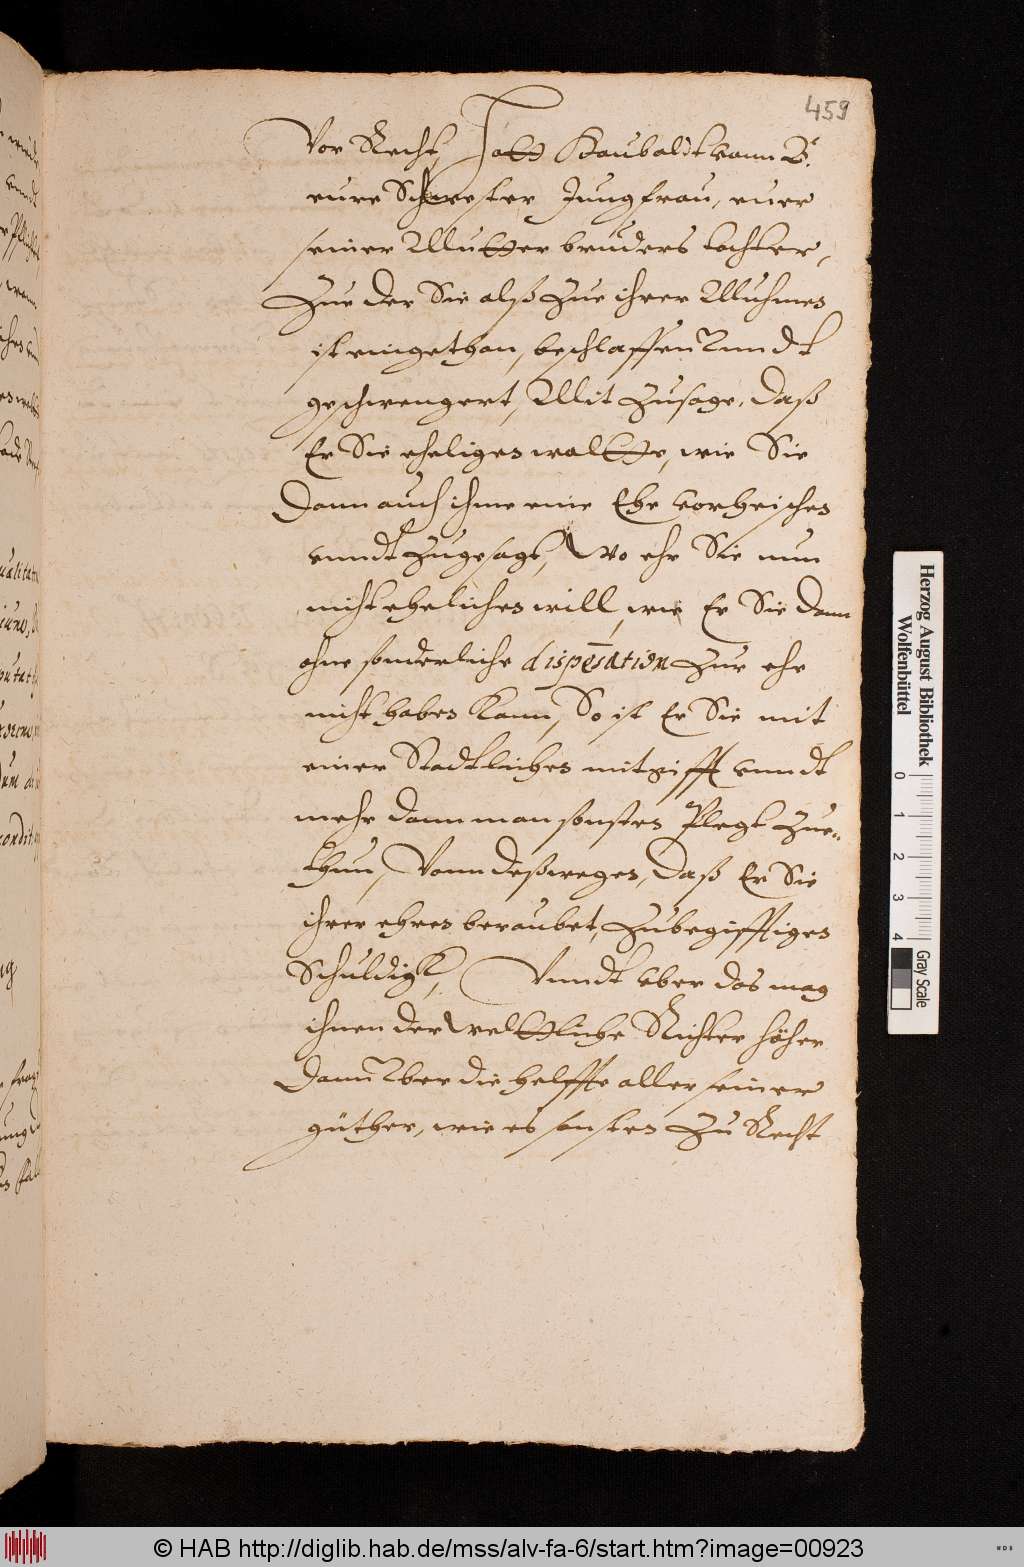 459
Vor Recht, Hatt Haubaldt vonn B.
eure Schwester Jungfrau, euer
seiner Mutter bruders tochter,
Zue der Sie alß Zue ihrer Muhmen
ist eingethan, beschlaffen Vnndt
geschwengert, Mit Zusage, Daß
Er Sie eheligen woltte, wie Sie
Dann auch ihme eine Ehe vorheischen
vnndt Zugesagt, Wo ehr Sie nun
nicht ehelichen will, wie Er Sie dann
ohne sonderliche dispēsation Zur ehe
nicht haben kann, So ist Er Sie mit
einer Stadtlichen mitgifft vnndt
mehr dann man sonsten Plegt Zue-
thun, Vonn deßwegen, Daß Er Sie
ihrer ehren beraubet, Zubegifftigen
Schuldigk, Vnndt vber das mag
ihnen der Welttliche Richter höher
Dann Vber die helffte aller seiner
güther, wie es sonsten Zu Recht
Herzog August Bibliothek
Wolfenbüttel
0 1 2 3 4
Gray Scale
© HAB http://diglib.hab.de/mss/alv-fa-6/start.htm?image=00923